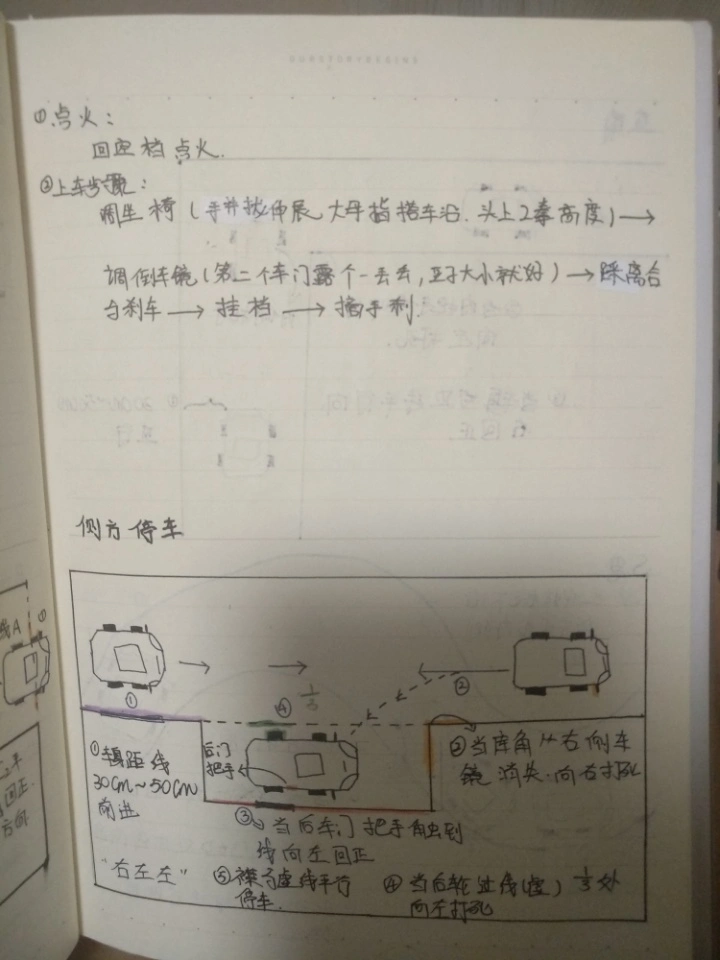 ①点火:
回空档点火.
②上车步骤:
调坐椅(手并拢伸展,大母指搭车沿.头上2拳高度)→
调倒车镜(第二个车门露个一点点,豆子大小就好)→踩离合
与刹车→挂档→摘手刹.
侧方停车
线A ①
①
②
④ 1/3
①车身距线
30cm~50cm
前进
后门
把手
②当库角从右侧车
镜消失.向右打死
③当后车门把手触到
线向左回正
"右左左"
⑤车与虚线平行
停车.
④当后轮过线(虚) 1/3处
向左打死
回正.
方向